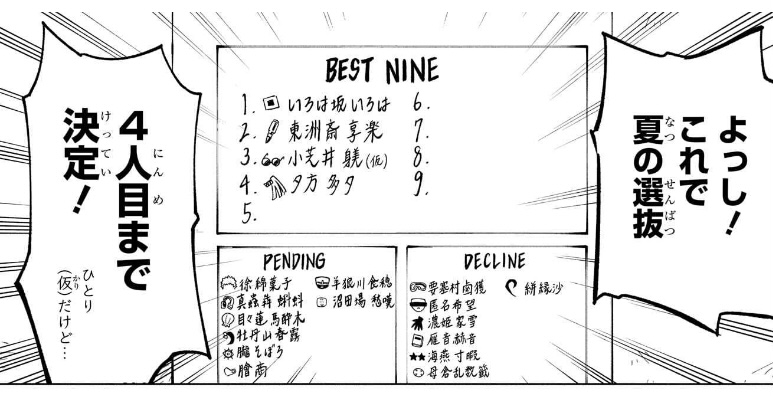 よっし！
これで
夏の選抜
BEST NINE
1. いろは坂いろは
2. 東洲斎享楽
3. 小芝井躾(仮)
4. 夕方多夕
5.
6.
7.
8.
9.
PENDING
徐綿菓子
真蟲犇蝌蚪
目々蓮馬酔木
牡丹山春霧
朧そぼろ
膾商
羊狼川食穏
沼田場愁嘆
DECLINE
要墓村鹵獲
匿名希望
濃姫家雪
雁音赫音
海燕寸暇
母倉乱数籤
絣縁沙
4人目まで
決定！
ひとり
(仮)だけど…